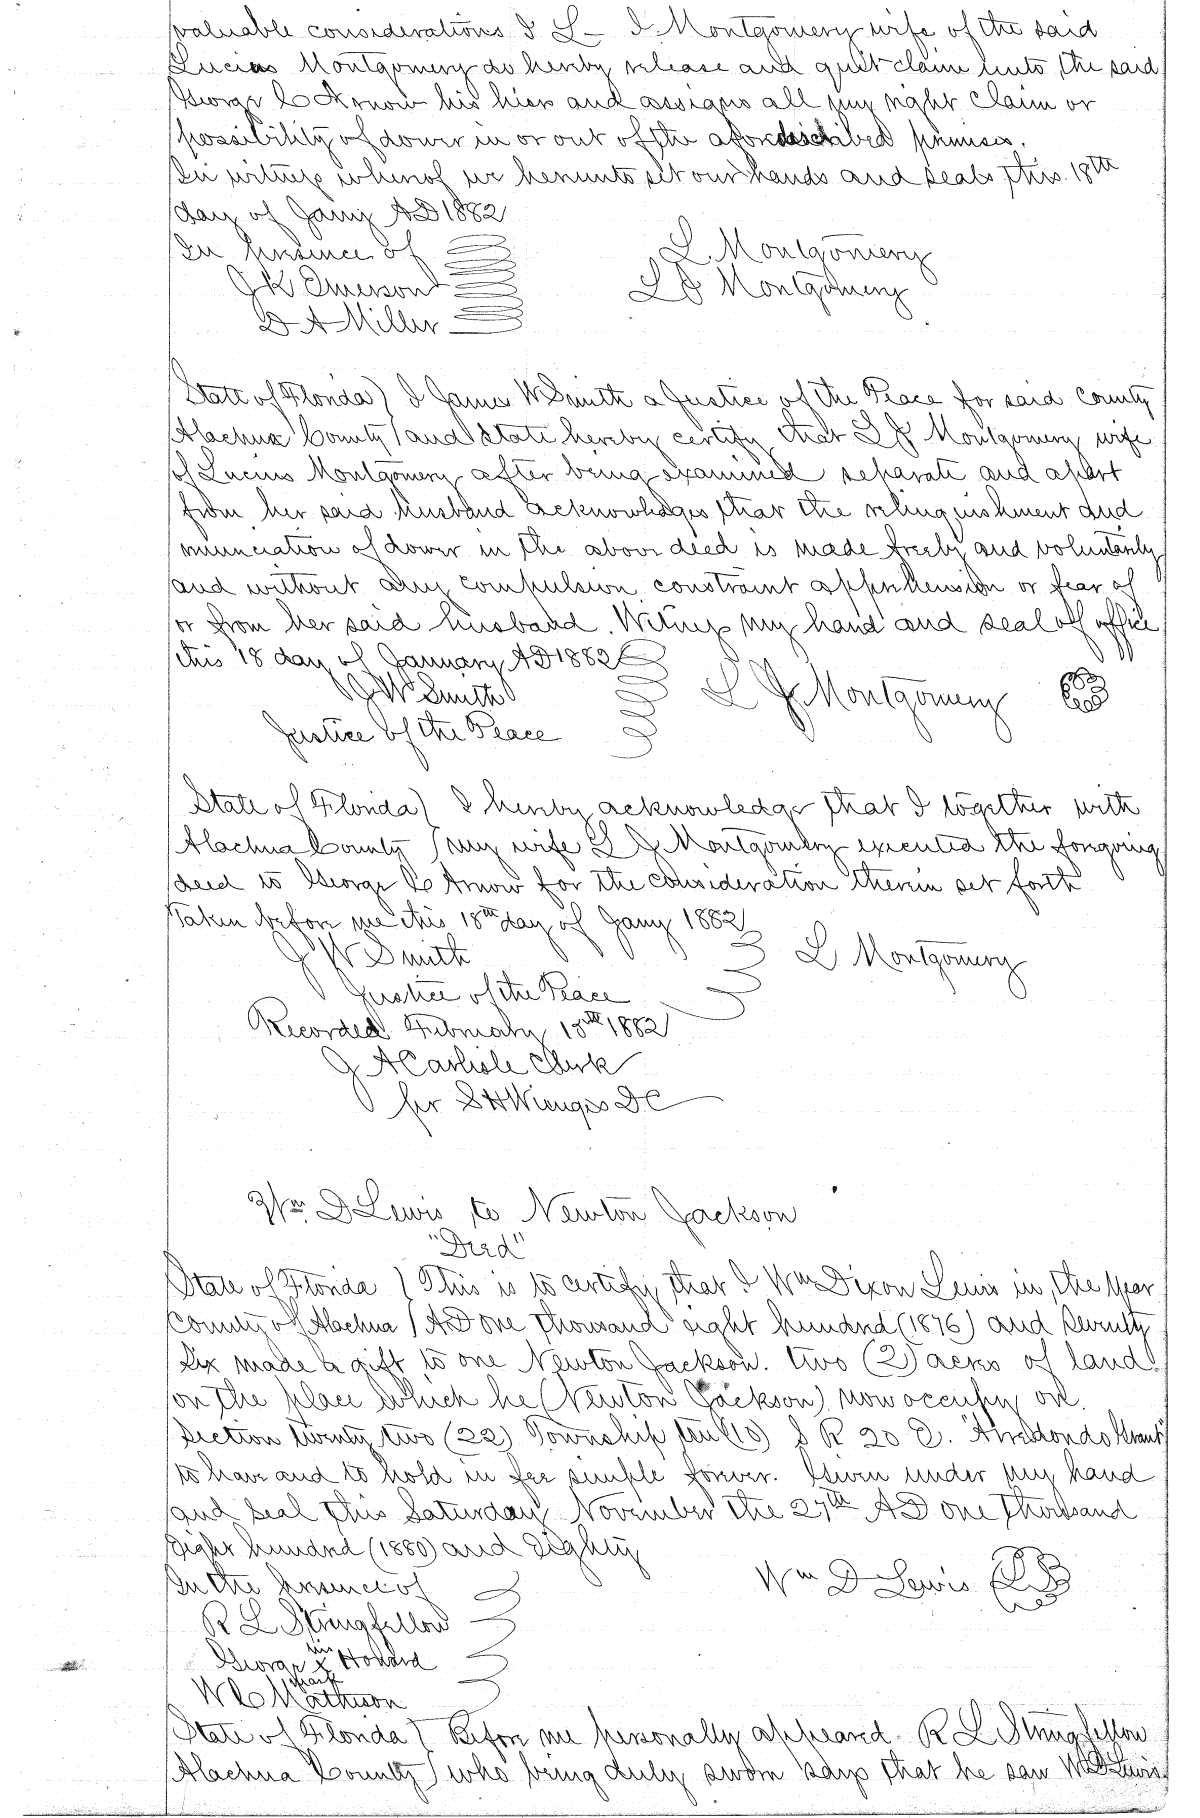 valuable considerations I L- J. Montgomery wife of the said
Lucius Montgomery do hereby release and quit claim unto the said
George C Arnow his hiers and assigns all my right claim or
possibility of dower in or out of the aforedescribed premises.
In witness whereof we hereunto set our hands and seals this 18th
day of Jany AD 1882
In presence of
L. Montgomery
J K Emerson
L J Montgomery
D A Miller
State of Florida) I James W Smith a Justice of the Peace for said County
Alachua County) and State hereby certify that L J Montgomery wife
of Lucius Montgomery after being examined separate and apart
from her said husband acknowledges that the relinquishment and
renunciation of dower in the above deed is made freely and voluntarily
and without any compulsion constraint apprehension or fear of
or from her said husband. Witness my hand and seal of office
this 18 day of January AD 1882
J W Smith
L J Montgomery
Justice of the Peace
State of Florida) I hereby acknowledge that I together with
Alachua County) my wife L J Montgomery executed the foregoing
deed to George C Arnow for the consideration therein set forth
Taken before me this 18th day of Jany 1882
J W Smith
L Montgomery
Justice of the Peace
Recorded February 15th 1882
J A Carlisle Clerk
per S H Wienges DC
Wm D Lewis to Newton Jackson
"Deed"
State of Florida ) This is to certify that I Wm Dixon Lewis in the year
County of Alachua ) AD one thousand eight hundred (1876) and Seventy
Six made a gift to one Newton Jackson. two (2) acres of land
on the place which he (Newton Jackson) now occupy on
Section twenty two (22) Township ten (10) S R 20 E. "Arredondo Grant"
to have and to hold in fee simple forever. Given under my hand
and seal this Saturday November the 27th AD one thousand
Eight hundred (1880) and Eighty
In the presence of
Wm D Lewis LS
R L Stringfellow
George his x mark Howard
W C Matheson
State of Florida ) Before me personally appeared R L Stringfellow
Alachua County ) who being duly sworn says that he saw Wm D Lewis